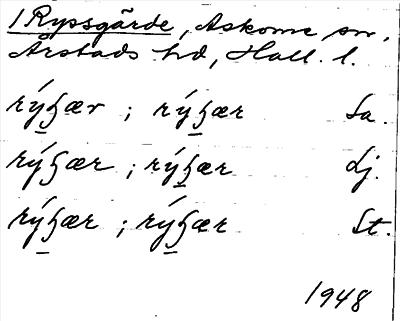 1 Ryssgärde, Askome sn,
Årstads hd, Hall. l.
rýꜧær ; rýꜧær Sa.
rýꜧær ; rýꜧær Lj.
rýꜧær ; rýꜧær St.
1948